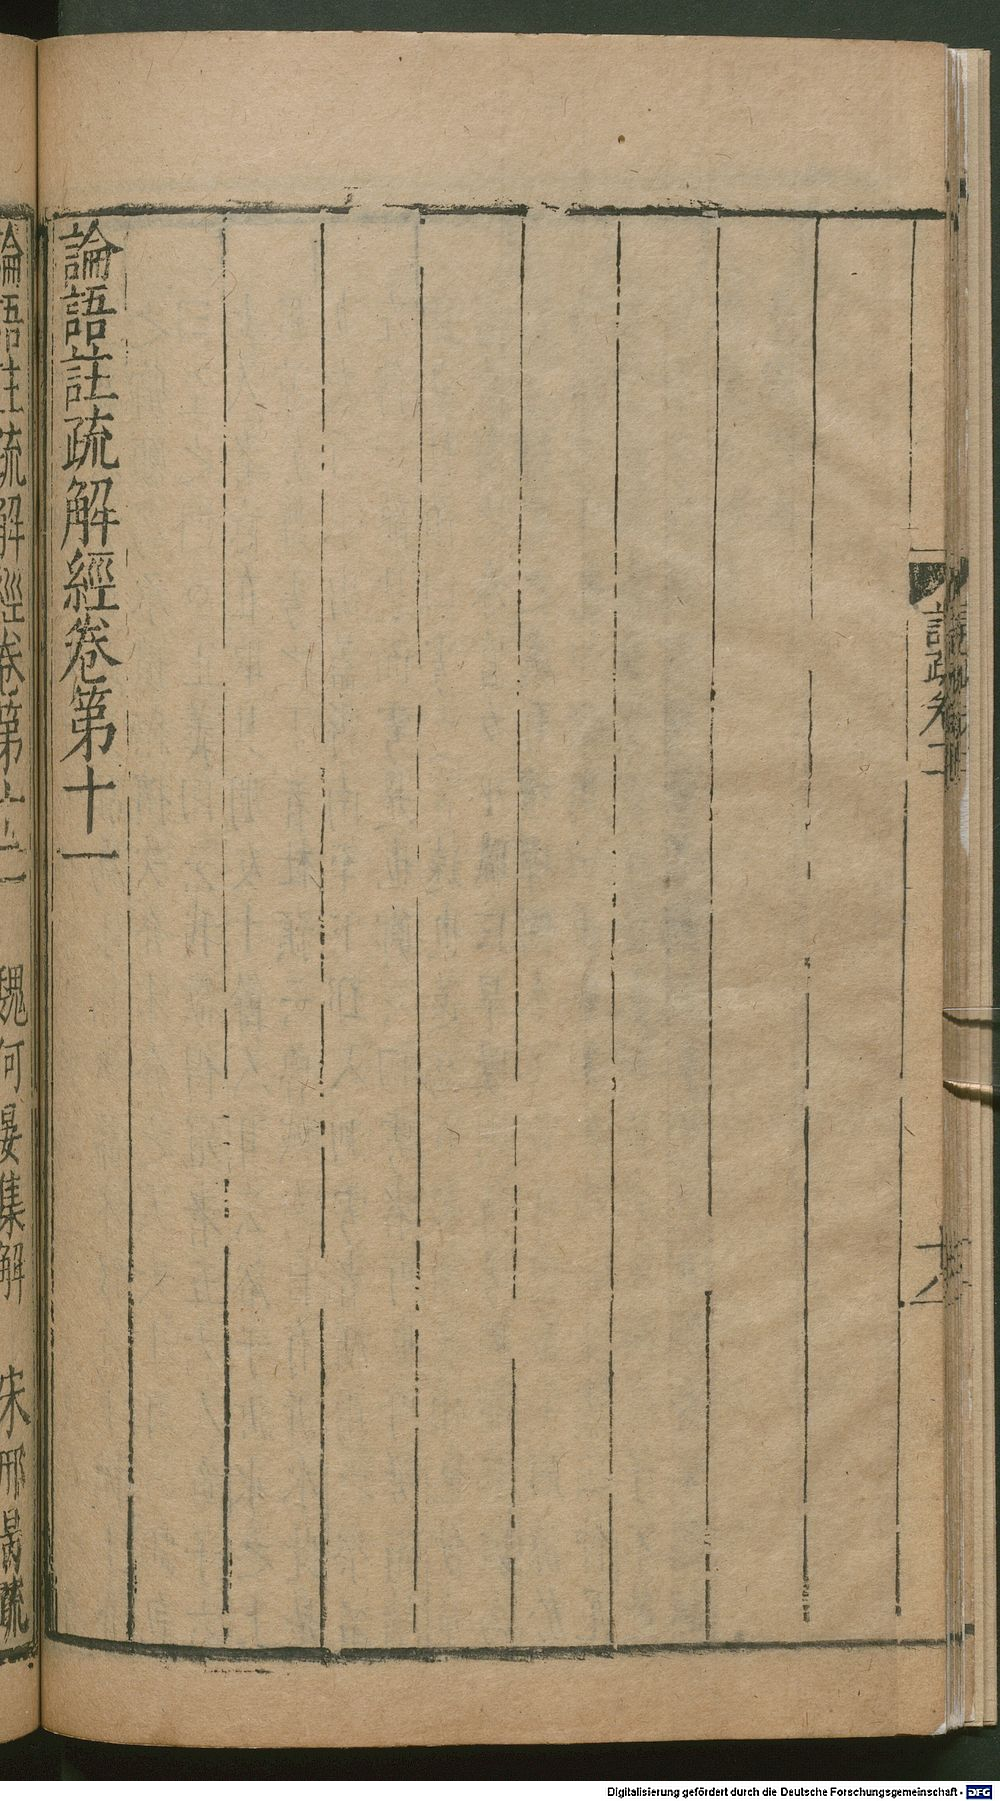 註疏卷十一
十六
論語註疏解經卷第十一
論語註疏解經卷第十二
魏何晏集解 宋邢昺疏
Digitalisierung gefördert durch die Deutsche Forschungsgemeinschaft - DFG